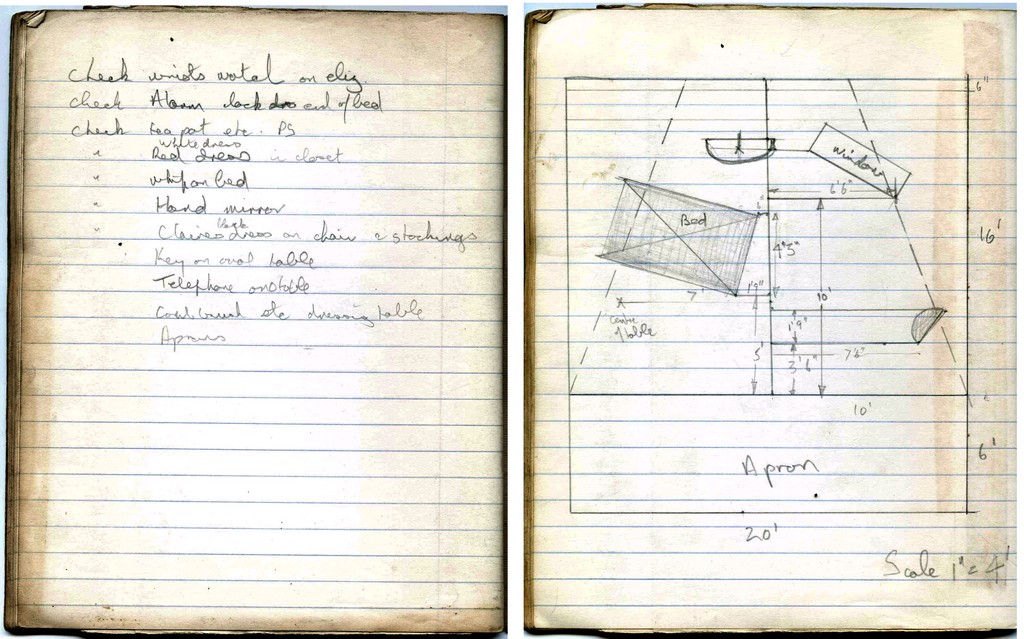 check on
check Alarm end of bed
check tea pot etc. PS
white dress
" Red dress in closet
" whip on bed
" Hand mirror
black
" Claires dress on chair & stockings
Key on oval table
Telephone on table
etc dressing table
Aprons
6"
window
6'6"
Bed
6"
4'3"
16'
7'
1'9"
10'
centre
of table
1'9"
5'
3'6"
7'6"
10'
6'
Apron
20'
Scale 1" = 4'